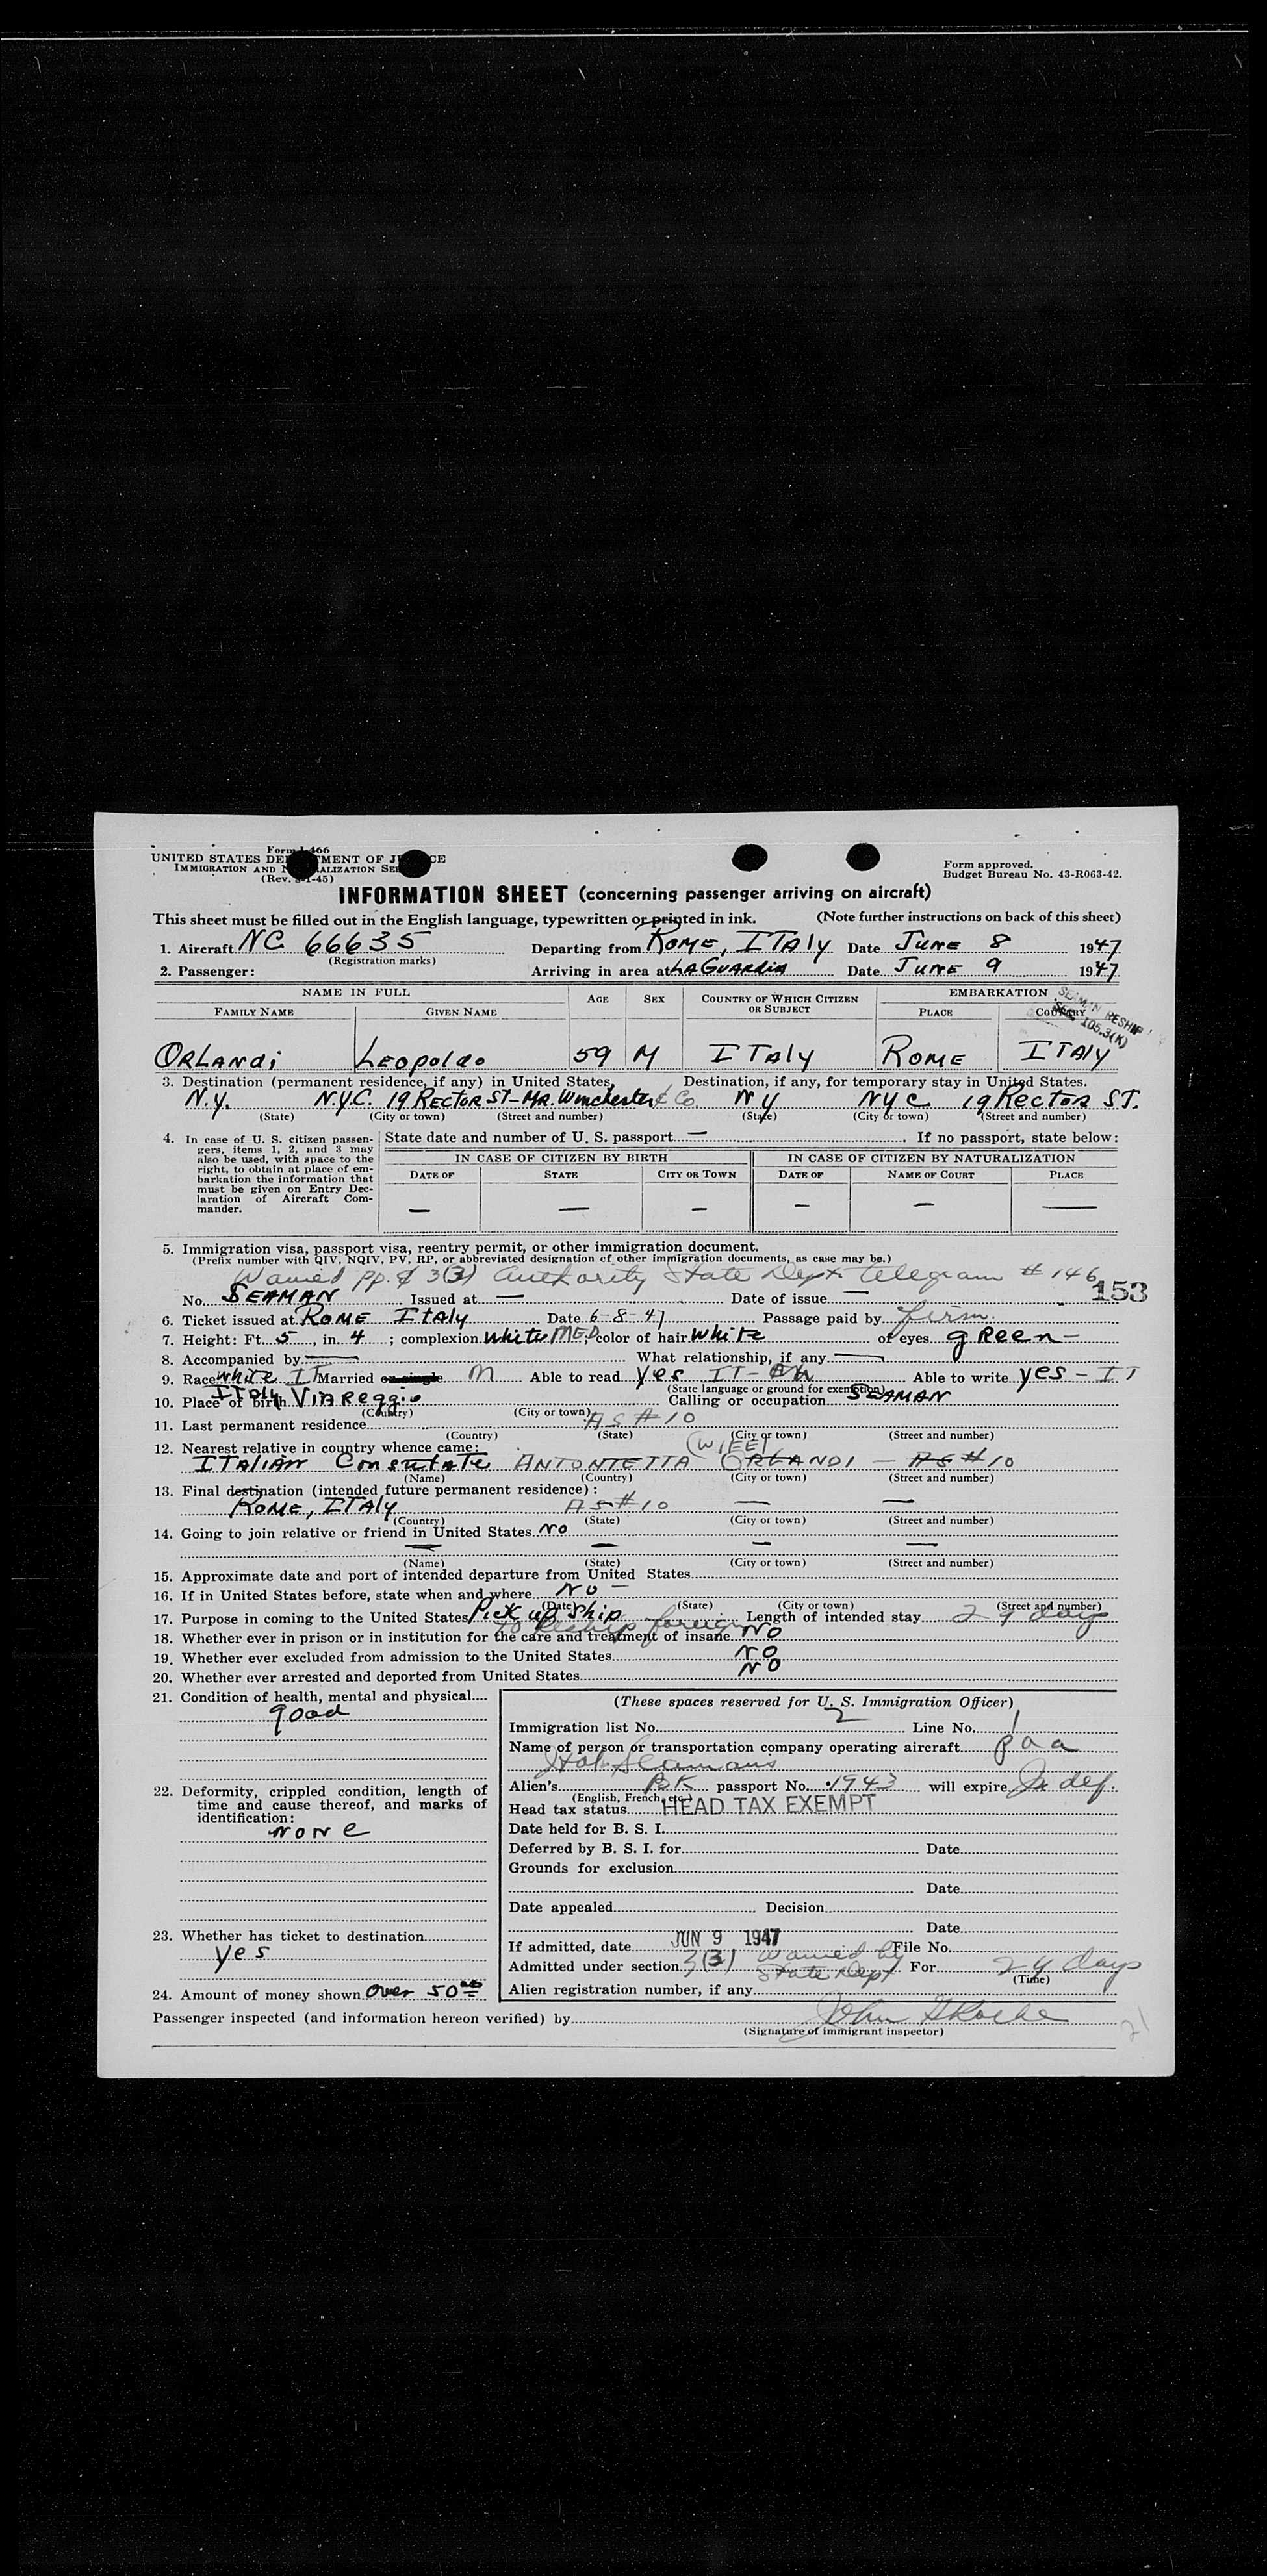 Form I-466
UNITED STATES DEPARTMENT OF JUSTICE
IMMIGRATION AND NATURALIZATION SERVICE
(Rev. 8-1-45)
Form approved.
Budget Bureau No. 43-R063-42.
INFORMATION SHEET (concerning passenger arriving on aircraft)
This sheet must be filled out in the English language, typewritten or printed in ink. (Note further instructions on back of this sheet)
1. Aircraft NC 66635 Departing from ROME, ITALY Date JUNE 8 1947
(Registration marks)
2. Passenger: Arriving in area at LAGUARDIA Date JUNE 9 1947
NAME IN FULL AGE SEX COUNTRY OF WHICH CITIZEN OR SUBJECT EMBARKATION
FAMILY NAME GIVEN NAME PLACE COUNTRY
SEAMAN RESHIP
SEC 105.3(K)
ORLANDI LEOPOLDO 59 M ITALY ROME ITALY
3. Destination (permanent residence, if any) in United States. Destination, if any, for temporary stay in United States.
N.Y. N.Y.C. 19 RECTOR ST - MR. Winchester & Co. NY NYC 19 RECTOR ST.
(State) (City or town) (Street and number) (State) (City or town) (Street and number)
4. In case of U. S. citizen passengers, items 1, 2, and 3 may also be used, with space to the right, to obtain at place of embarkation the information that must be given on Entry Declaration of Aircraft Commander.
State date and number of U. S. passport — If no passport, state below:
IN CASE OF CITIZEN BY BIRTH IN CASE OF CITIZEN BY NATURALIZATION
DATE OF STATE CITY OR TOWN DATE OF NAME OF COURT PLACE
— — — — — —
5. Immigration visa, passport visa, reentry permit, or other immigration document.
(Prefix number with QIV, NQIV, PV, RP, or abbreviated designation of other immigration documents, as case may be.)
Waived pp. & 3(3) Authority State Dept telegram # 146
No. SEAMAN Issued at — Date of issue — 153
6. Ticket issued at ROME ITALY Date 6-8-47 Passage paid by firm.
7. Height: Ft. 5, in. 4; complexion White MED; color of hair White of eyes green -
8. Accompanied by — What relationship, if any —
9. Race white IT Married or single M Able to read yes IT- Able to write yes - IT
(State language or ground for exemption)
10. Place of birth ITALY VIAREGGIO Calling or occupation SEAMAN
(Country) (City or town)
11. Last permanent residence AS # 10
(Country) (State) (City or town) (Street and number)
12. Nearest relative in country whence came: (WIFE)
ITALIAN Consulate ANTONIETTA ORLANDI - AS # 10
(Name) (Country) (City or town) (Street and number)
13. Final destination (intended future permanent residence):
ROME, ITALY AS # 10 — —
(Country) (State) (City or town) (Street and number)
14. Going to join relative or friend in United States NO
— — — —
(Name) (State) (City or town) (Street and number)
15. Approximate date and port of intended departure from United States
16. If in United States before, state when and where NO -
(Date) (State) (City or town) (Street and number)
17. Purpose in coming to the United States Pick up Ship Length of intended stay 29 days
to Reship foreign
18. Whether ever in prison or in institution for the care and treatment of insane NO
19. Whether ever excluded from admission to the United States NO
20. Whether ever arrested and deported from United States NO
21. Condition of health, mental and physical
good
22. Deformity, crippled condition, length of time and cause thereof, and marks of identification:
NONE
23. Whether has ticket to destination
yes
24. Amount of money shown Over 50
(These spaces reserved for U. S. Immigration Officer)
Immigration list No. 2 Line No. 1
Name of person or transportation company operating aircraft paa
Ital Seamans
Alien's BK passport No. 1943 will expire Indef.
(English, French, etc.)
Head tax status HEAD TAX EXEMPT
Date held for B. S. I.
Deferred by B. S. I. for Date
Grounds for exclusion
Date
Date appealed Decision
Date
If admitted, date JUN 9 1947 File No.
Admitted under section 3(3) Waived by State Dept For 29 days
(Time)
Alien registration number, if any
Passenger inspected (and information hereon verified) by John
(Signature of immigrant inspector)
21